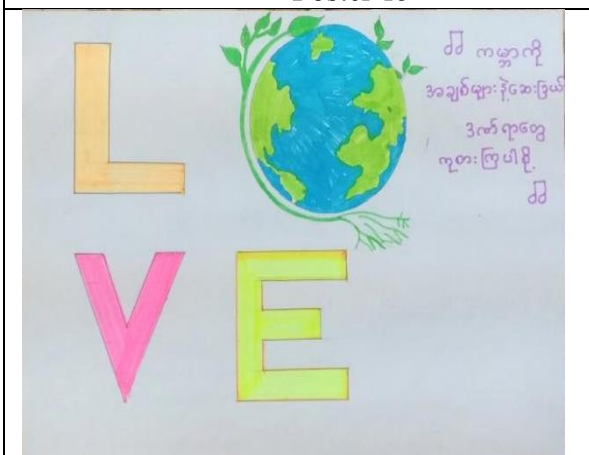 L
VE
♫ ကမ္ဘာကို
အချစ်များနဲ့ဆေးဒြယ်
ဒဏ်ရာတွေ
ကုစားကြပါစို့
♫